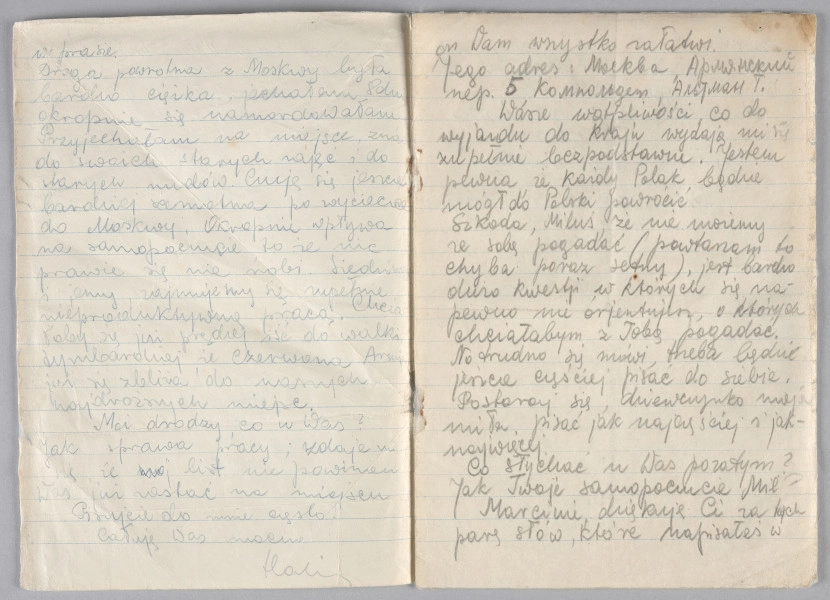 w prasie.
Droga powrotna z Moskwy była
bardzo ciężka. Jechałam 8 dni
okropnie się namordowałam
Przyjechałam na miejsce, zno
do swoich starych zajęć i do
starych nudów. Czuję się jeszcze
bardziej samotna po wycieczce
do Moskwy. Okropnie wpływa
na samopoczucie to że nic
prawie się nie robi. Siedzimy
i zajmujemy się zupełnie
nieproduktywną pracą. Chcia
łoby się już prędzej iść do walki
tymbardziej że Czerwona Armja
już się zbliża do naszych
najdroższych miejsc.
Moi drodzy co u Was?
Jak sprawa pracy; zdaje mi
się że mój list nie powinien
Was już zastać na miejscu
Piszcie do mnie często!
Całuję Was mocno
Hali
on Wam wszystko załatwi.
Jego adres: Москва Армянский
пер. 5 Комнолцем, Альтман Г.
Wasze wątpliwości, co do
wyjazdu do kraju wydają mi się
zupełnie bezpodstawne. Jestem
pewna że każdy Polak będzie
mógł do Polski powrócić.
Szkoda, Miluś, że nie możemy
ze sobą pogadać (powtarzam to
chyba poraz setny), jest bardzo
dużo kwestji, w których się na-
pewno nie orjentujesz, o których
chciałabym z Tobą pogadać.
No trudno się mówi, trzeba będzie
jeszcze częściej pisać do siebie.
Postaraj się, dziewczynko moja
miła, pisać jak najczęściej i jak-
najwięcej.
Co słychać u Was pozatym?
Jak Twoje samopoczucie Mil
Marcinie, dziękuję Ci za tych
parę słów, które napisałeś w